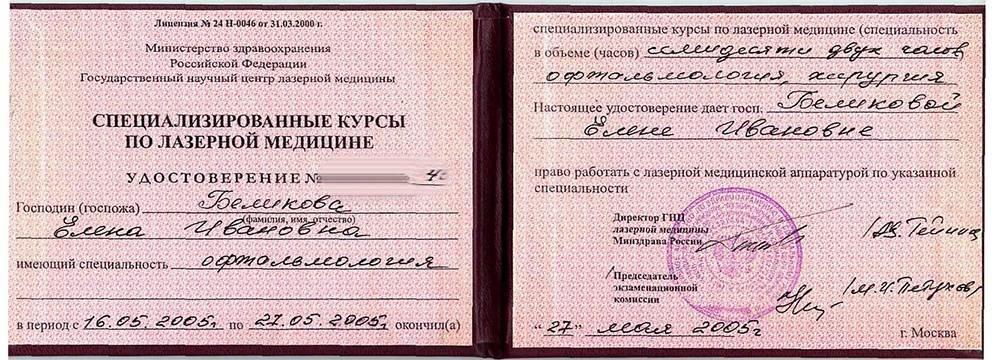 Лицензия № 24 Н-0046 от 31.03.2000 г.
Министерство здравоохранения
Российской Федерации
Государственный научный центр лазерной медицины
СПЕЦИАЛИЗИРОВАННЫЕ КУРСЫ
ПО ЛАЗЕРНОЙ МЕДИЦИНЕ
УДОСТОВЕРЕНИЕ №
Господин (госпожа) Беликова
(фамилия, имя, отчество)
Елена Ивановна
имеющий специальность офтальмология
в период с 16.05.2005г. по 27.05.2005г. окончил(а)
специализированные курсы по лазерной медицине (специальность
в объеме (часов) семидесяти двух часов
офтальмология, хирургия
Настоящее удостоверение дает госп. Беликовой
Елене Ивановне
право работать с лазерной медицинской аппаратурой по указанной
специальности
Директор ГНЦ
лазерной медицины
Минздрава России
Председатель
экзаменационной
комиссии
"27" мая 2005г
г. Москва